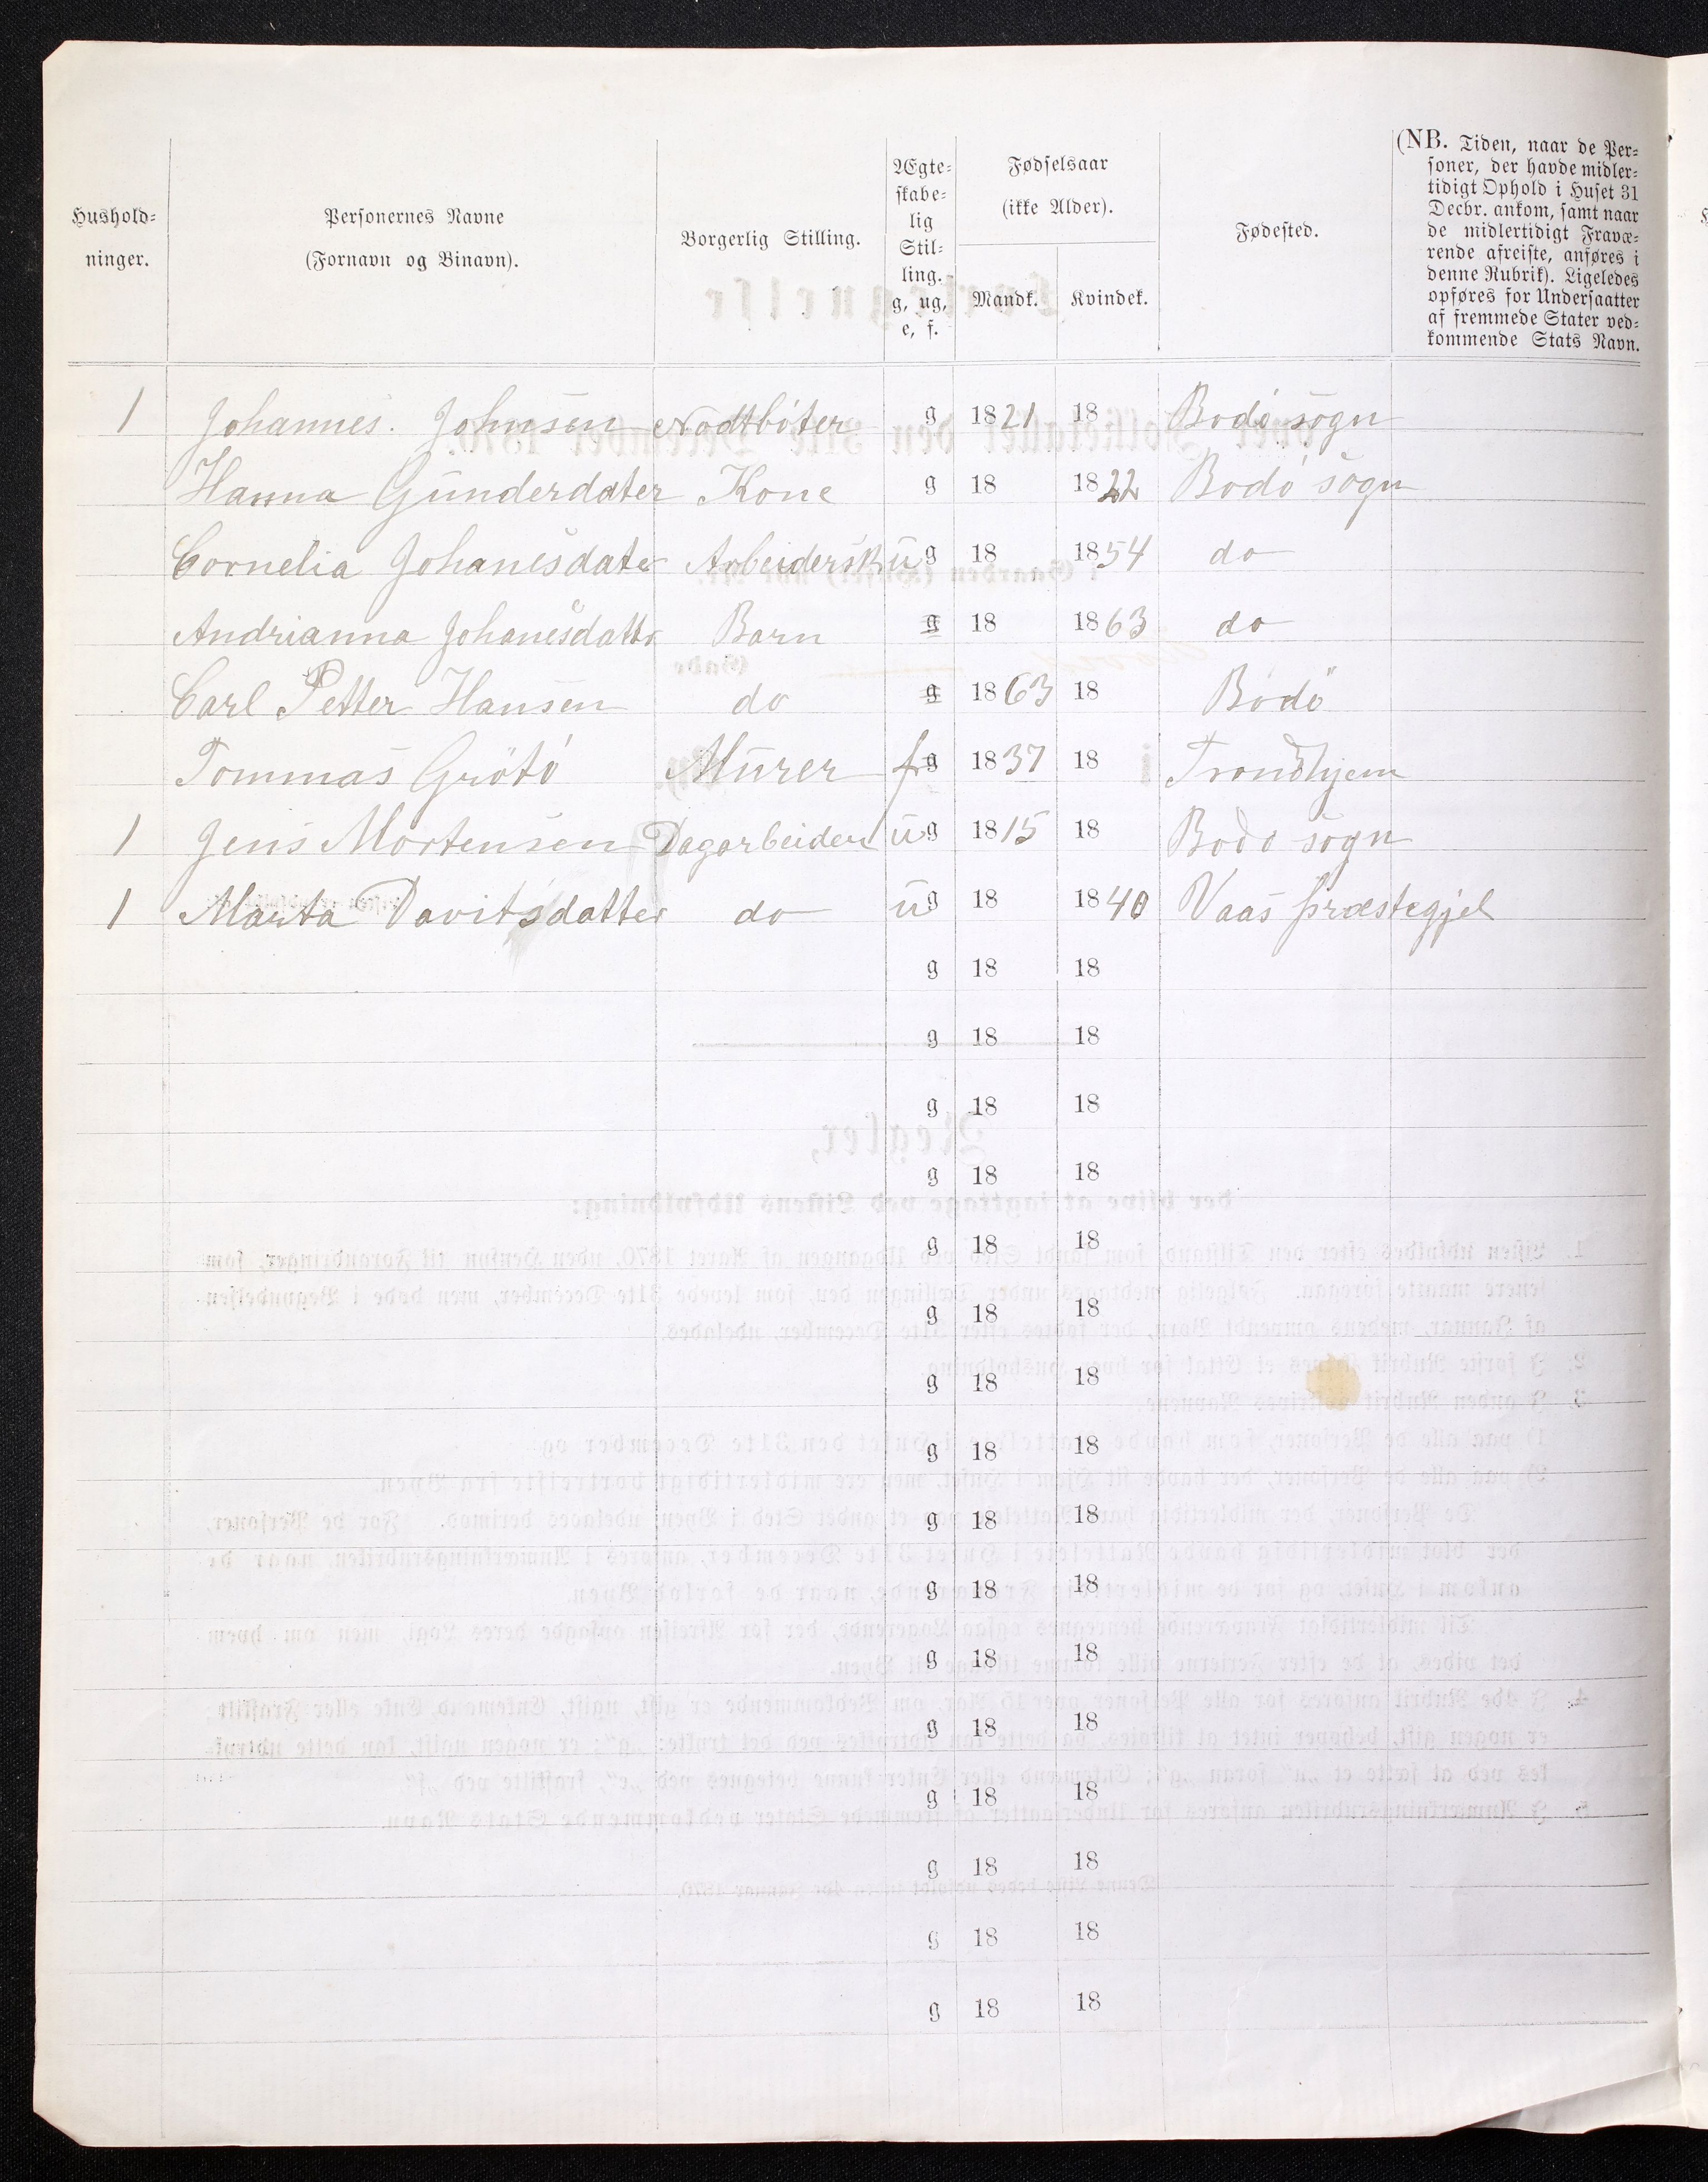 Hushold-
ninger.
Personernes Navne
(Fornavn og Binavn).
Borgerlig Stilling.
Ægte-
skabe-
lig
Stil-
ling.
g, ug,
e, f.
Fødselsaar
(ikke Alder).
Mandk. Kvindek.
Fødested.
(NB. Tiden, naar de Per-
soner, der havde midler-
tidigt Ophold i Huset 31
Decbr. ankom, samt naar
de midlertidigt Fravæ-
rende afreiste, anføres i
denne Rubrik). Ligeledes
opføres for Undersaatter
af fremmede Stater ved-
kommende Stats Navn.
1 Johannes. Johnsen Nodtböter g 1821 18 Bodö sogn
Hanna Gunderdater Kone g 18 1822 Bodö sogn
Cornelia Johanesdater Arbeidersk ug 18 1854 do
Andrianna Johanesdatter Barn g 18 1863 do
Carl Petter Hansen do g 1863 18 Bodö
Tommas Grötö Murer fg 1837 18 Trondhjem
1 Jens Mortensen Dagarbeider ug 1815 18 Bodö sogn
1 Marta Davitsdatter do ug 18 1840 Vaas præstegjel
g 18 18
g 18 18
g 18 18
g 18 18
g 18 18
g 18 18
g 18 18
g 18 18
g 18 18
g 18 18
g 18 18
g 18 18
g 18 18
g 18 18
g 18 18
g 18 18